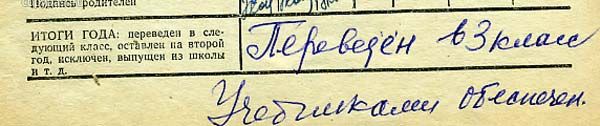 Подпись родителей
ИТОГИ ГОДА: переведен в сле-
дующий класс, оставлен на второй
год, исключен, выпущен из школы
и т. д.
Переведён в 3 класс
Учебниками обеспечен.